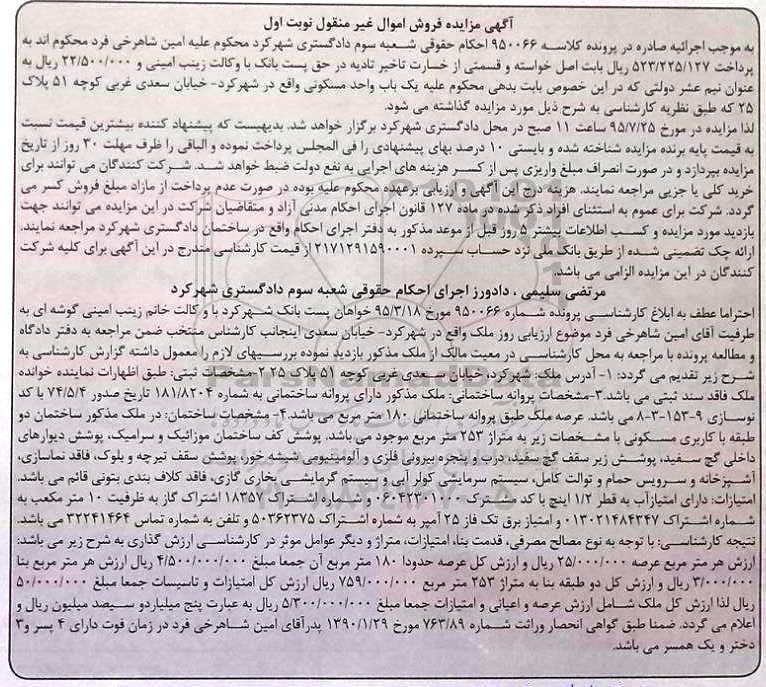 آگهی مزایده فروش اموال غیر منقول نوبت اول
به موجب اجرائیه صادره در پرونده کلاسه ۹۵۰۰۶۶ احکام حقوقی شعبه سوم دادگستری شهرکرد محکوم علیه امین شاهرخی فرد محکوم اند به
پرداخت ۵۲۳/۲۲۵/۱۲۷ ریال بابت اصل خواسته و قسمتی از خسارت تاخیر تادیه در حق پست بانک با وکالت زینب امینی و ۲۲/۵۰۰/۰۰۰ ریال به
عنوان نیم عشر دولتی که در این خصوص بابت بدهی محکوم علیه یک باب واحد مسکونی واقع در شهرکرد- خیابان سعدی غربی کوچه ۵۱ پلاک
۲۵ که طبق نظریه کارشناسی به شرح ذیل مورد مزایده گذاشته می شود.
لذا مزایده در مورخ ۹۵/۷/۲۵ ساعت ۱۱ صبح در محل دادگستری شهرکرد برگزار خواهد شد. بدیهیست که پیشنهاد کننده بیشترین قیمت نسبت
به قیمت پایه برنده مزایده شناخته شده و بایستی ۱۰ درصد بهای پیشنهادی را فی المجلس پرداخت نموده و الباقی را ظرف مهلت ۳۰ روز از تاریخ
مزایده بپردازد و در صورت انصراف مبلغ واریزی پس از کسر هزینه های اجرایی به نفع دولت ضبط خواهد شد. شرکت کنندگان می توانند برای
خرید کلی یا جزیی مراجعه نمایند. هزینه درج این آگهی و ارزیابی برعهده محکوم علیه بوده در صورت عدم پرداخت از مازاد مبلغ فروش کسر می
گردد. شرکت برای عموم به استثنای افراد ذکر شده در ماده ۱۲۷ قانون اجرای احکام مدنی آزاد و متقاضیان شرکت در این مزایده می توانند جهت
بازدید مورد مزایده و کسب اطلاعات بیشتر ۵ روز قبل از موعد مذکور به دفتر اجرای احکام واقع در ساختمان دادگستری شهرکرد مراجعه نمایند.
ارائه چک تضمینی شده از طریق بانک ملی نزد حساب سپرده ۲۱۷۱۲۹۱۵۹۰۰۰۱ از قیمت کارشناسی مندرج در این آگهی برای کلیه شرکت
کنندگان در این مزایده الزامی می باشد.
مرتضی سلیمی ، دادورز اجرای احکام حقوقی شعبه سوم دادگستری شهرکرد
احتراما عطف به ابلاغ کارشناسی پرونده شماره ۹۵۰۰۶۶ مورخ ۹۵/۳/۱۸ خواهان پست بانک شهرکرد با وکالت خانم زینب امینی گوشه ای به
طرفیت آقای امین شاهرخی فرد موضوع ارزیابی روز ملک واقع در شهرکرد- خیابان سعدی اینجانب کارشناس منتخب ضمن مراجعه به دفتر دادگاه
و مطالعه پرونده با مراجعه به محل کارشناسی در معیت مالک از ملک مذکور بازدید نموده بررسیهای لازم را معمول داشته گزارش کارشناسی به
شرح زیر تقدیم می گردد: ۱- آدرس ملک: شهرکرد، خیابان سعدی غربی کوچه ۵۱ پلاک ۲۵ ۲-مشخصات ثبتی: طبق اظهارات نماینده خوانده
ملک فاقد سند ثبتی می باشد.۳-مشخصات پروانه ساختمانی: ملک مذکور دارای پروانه ساختمانی به شماره ۱۸۱/۸۲۰۴ تاریخ صدور ۷۴/۵/۴ با کد
نوسازی ۹-۱۵۳-۳-۸ می باشد. عرصه ملک طبق پروانه ساختمانی ۱۸۰ متر مربع می باشد.۴- مشخصات ساختمان: در ملک مذکور ساختمان دو
طبقه با کاربری مسکونی با مشخصات زیر به متراژ ۲۵۳ متر مربع موجود می باشد. پوشش کف ساختمان موزائیک و سرامیک، پوشش دیوارهای
داخلی گچ سفید، پوشش زیر سقف گچ سفید، درب و پنجره بیرونی فلزی و آلومینیومی شیشه خور، پوشش سقف تیرچه و بلوک، فاقد نماسازی،
آشپزخانه و سرویس حمام و توالت کامل، سیستم سرمایشی کولر آبی و سیستم گرمایشی بخاری گازی، فاقد کلاف بندی بتونی قائم می باشد.
امتیازات: دارای امتیازآب به قطر ۱/۲ اینچ با کد مشترک ۰۶۰۴۲۳۰۱۰۰۰ و شماره اشتراک ۱۸۳۵۷ اشتراک گاز به ظرفیت ۱۰ متر مکعب به
شماره اشتراک ۰۱۳۰۲۱۴۸۴۳۴۷ و امتیاز برق تک فاز ۲۵ آمپر به شماره اشتراک ۵۰۳۶۲۳۷۵ و تلفن به شماره تماس ۳۲۲۴۱۴۶۴ می باشد.
نتیجه کارشناسی: با توجه به نوع مصالح مصرفی، قدمت بنا، امتیازات، متراژ و دیگر عوامل موثر در کارشناسی ارزش گذاری به شرح زیر می باشد:
ارزش هر متر مربع عرصه ۲۵/۰۰۰/۰۰۰ ریال و ارزش کل عرصه حدودا ۱۸۰ متر مربع آن جمعا مبلغ ۴/۵۰۰/۰۰۰/۰۰۰ ریال ارزش هر متر مربع بنا
۳/۰۰۰/۰۰۰ ریال و ارزش کل دو طبقه بنا به متراژ ۲۵۳ متر مربع ۷۵۹/۰۰۰/۰۰۰ ریال ارزش کل امتیازات و تاسیسات جمعا مبلغ ۵۰/۰۰۰/۰۰۰
ریال لذا ارزش کل ملک شامل ارزش عرصه و اعیانی و امتیازات جمعا مبلغ ۵/۳۰۰/۰۰۰/۰۰۰ ریال به عبارت پنج میلیاردو سیصد میلیون ریال و
اعلام می گردد. ضمنا طبق گواهی انحصار وراثت شماره ۷۶۳/۸۹ مورخ ۱۳۹۰/۱/۲۹ پدرآقای امین شاهرخی فرد در زمان فوت دارای ۴ پسر و۳
دختر و یک همسر می باشد.
ParsNamadData